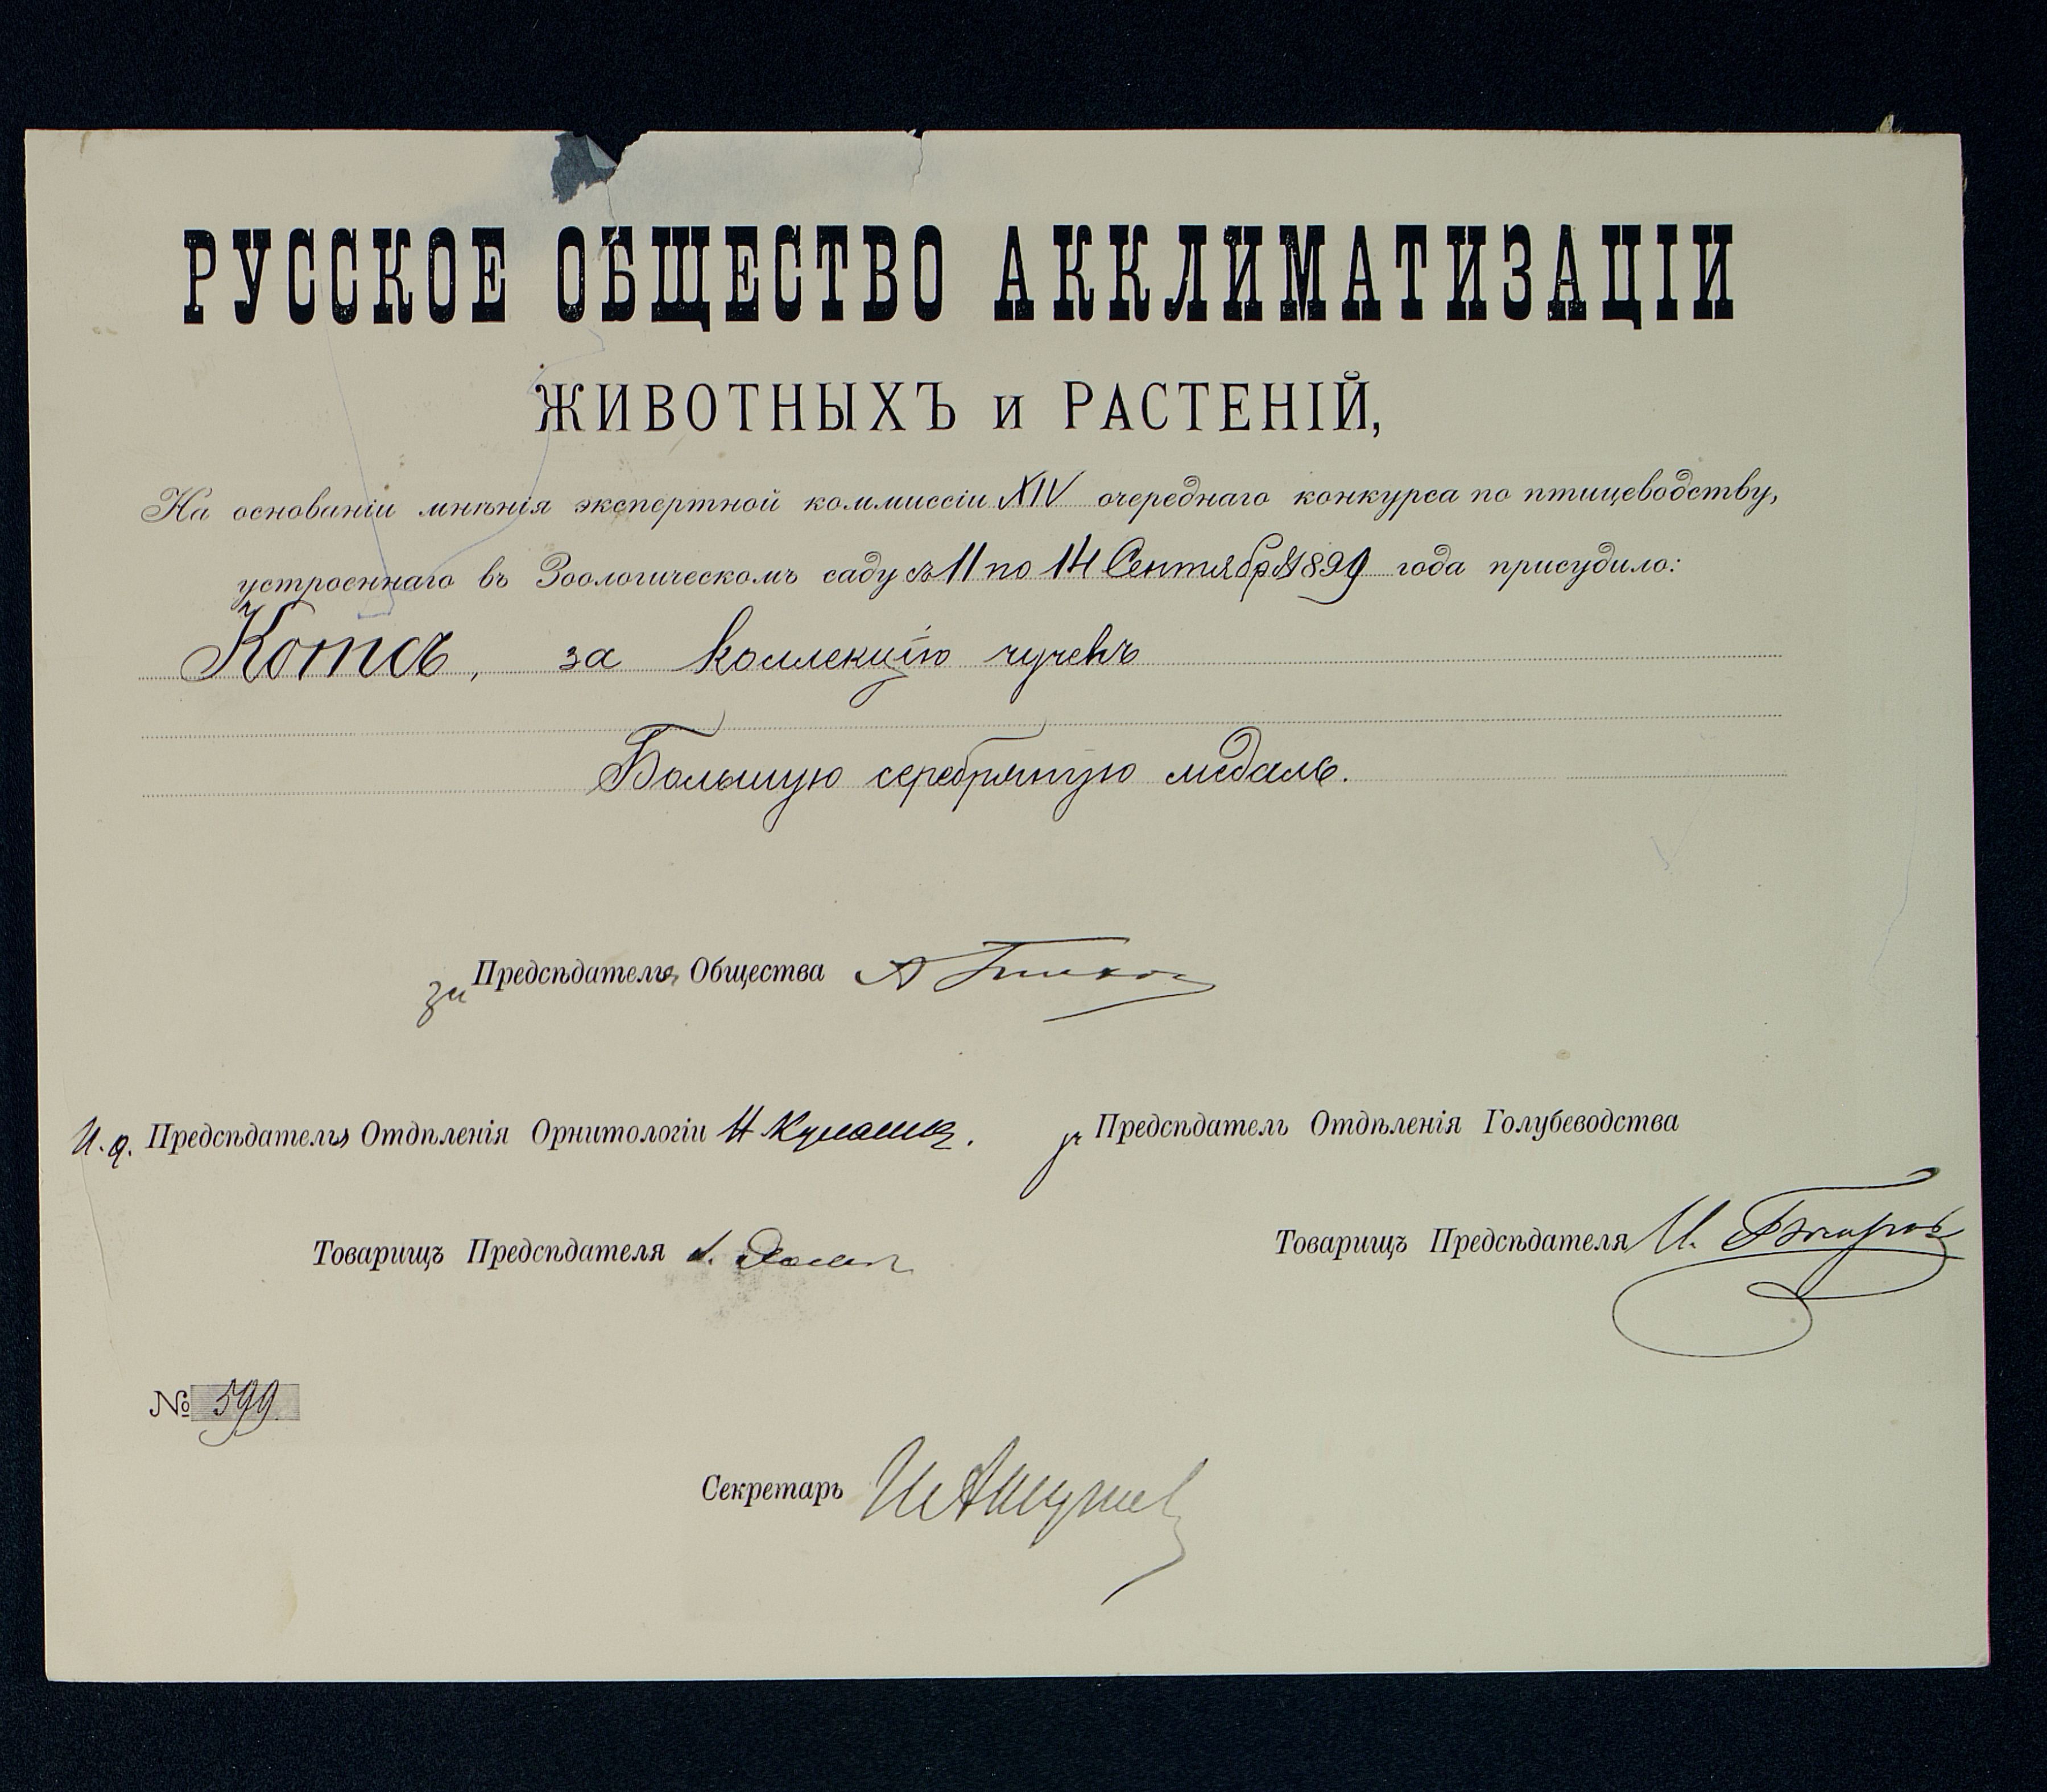 РУССКОЕ ОБЩЕСТВО АККЛИМАТИЗАЦІИ
ЖИВОТНЫХЪ и РАСТЕНІЙ,
На основаніи мнѣнія экспертной коммиссіи XIV очереднаго конкурса по птицеводству,
устроеннаго въ Зоологическомъ саду съ 11 по 14 Сентября 1899 года присудило:
Котсъ, за коллекцію чучелъ
Большую серебряную медаль.
за Предсѣдателя Общества А
И. д. Предсѣдателя Отдѣленія Орнитологіи Н
Предсѣдатель Отдѣленія Голубеводства
Товарищъ Предсѣдателя
Товарищъ Предсѣдателя И.
№ 599
Секретарь